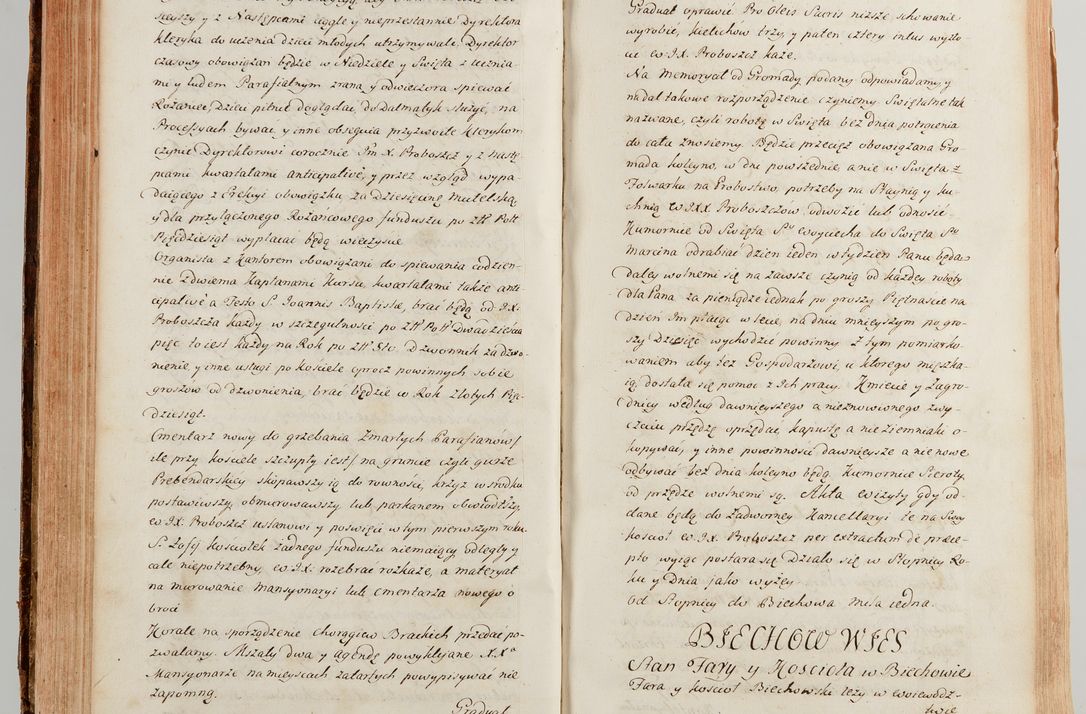 szszy y z Następcami ciągle y nieprzestannie Dyrektora
kleryka do uczenia dzieci młodych utrzymywać. Dyrektor
czasowy obowiązan będzie w Niedziele y Święta z ucznia-
mi y ludem Parafialnym zrana y odwieczora spiewać
Rożaniec, Dzieci pilnie doglądać, do Dalmatyk służyć, na
Processyach bywać, y inne obsequia przyzwoite klerykom
czynić Dyrektorowi corocznie Jm X. Proboszcz y z nastę-
pcami kwartałami anticipative, y przez wzgląd wypa-
daiącego z Erekcyi obowiązku, za Dziesięcinę
y dla przyłączonego Rożańcowego funduszu po złł Pol.
Pięćdziesiąt wypłacać będą wieczyście
Organista z Kantorem obowiązani do spiewania codzien-
nie z dwiema Kapłanami Kursu, kwartałami także anti-
cipative a Festo S. Joannis Baptistæ, brać będą od JX.
Proboszcza każdy w szczegulności po złł Pol: Dwadzieścia
pięć to iest każdy na Rok po złł Sto. Dzwonnik za dzwo-
nienie y inne usługi po kościele oprocz powinnych sobie
groszów od dzwonienia, brać będzie w Rok złotych Pię-
dziesiąt.
Cmentarz nowy do grzebania Zmarłych Parafianów/
ile przy kościele szczupły iest/ na gruncie czyli gurze
Prebendarskiey skopawszy ią do rowności, krzyż w środku
postawiwszy, obmurowawszy lub parkanem obwiodłszy,
w JX: Proboszcz ustanowi y poswięci w tym pierwszym roku
S. Zofij kościołek żadnego funduszu niemaiący odległy y
całe niepotrzebny, w JX: rozebrać rozkaże, a materyał
na murowanie Mansyonaryi lub Cmentarza nowego o-
broci
Korale na sporządzenie chorągiew Brackich przedać po-
zwalamy. Mszały dwa y Agendę powyklejane X.X.
Mansyonarze na mieyscach zatartych powypisywać nie
zapomną.
Graduał
Graduał oprawić Pro Oleis Sacris niższe schowanie
wyrobić, kielichow trzy, y paten cztery intus wyzło-
cić w JX. Proboszcz każe.
Na Memoryał od Gromady podany odpowiadamy y
nadał takowe rozporządzenie czyniemy Świętalne tak
nazwane, czyli robotę w Święta bez dnia potrącenia
do cała znosiemy. Będzie przecięż obowiązana Gro-
mada koleyno, w dni powszednie a nie w Święta z
Folwarku na Probostwo, potrzeby na Staynią y ku-
chnią w JXX Proboszczów, odwozić lub odnosić
Kumornie od Święta Sgo Woyciecha do Święta Sgo
Marcina odrabiać dzień ieden w tydzień Panu będą,
daley wolnemi się na zawsze czynią od każdey roboty
dla Pana, za pieniądze iednak po groszy Piętnaście na
dzień Jm płacąc w lecie, na dniu mnieyszym po gro-
szy Dziesięć wychodzić powinny z tym pomiarko-
waniem aby też Gospodarzowi, u ktorego mięszka-
ią, dostała się pomoc z Jch pracy. Kmiecie y Zagro-
dnicy według dawnieyszego a nieznowionego zwy-
czaiu przędzę oprzędać, kapustę a nie ziemniaki o-
kopywać, y inne powinności dawnieysze a nie nowe
odbywać bez dnia koleyno będą. Kumornice Sieroty,
od przędze wolnemi są. Akta wizyty gdy od-
dane będą do Zadworney Kancellaryi te na Swoy
kościoł w JX. Proboszcz per extractum de præce-
pto wyiąć postara się. Działo się w Stopnicy Ro-
ku y Dnia jako wyżey.
Od Stopnicy do Biechowa mila iedna.
BIECHOW WIES
Stan Fary y Kościoła w Biechowie
Fara y kościoł Biechowski leży w Woiewodz-
twie